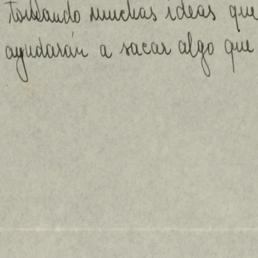 tomando muchas ideas que
ayudarán a sacar algo que